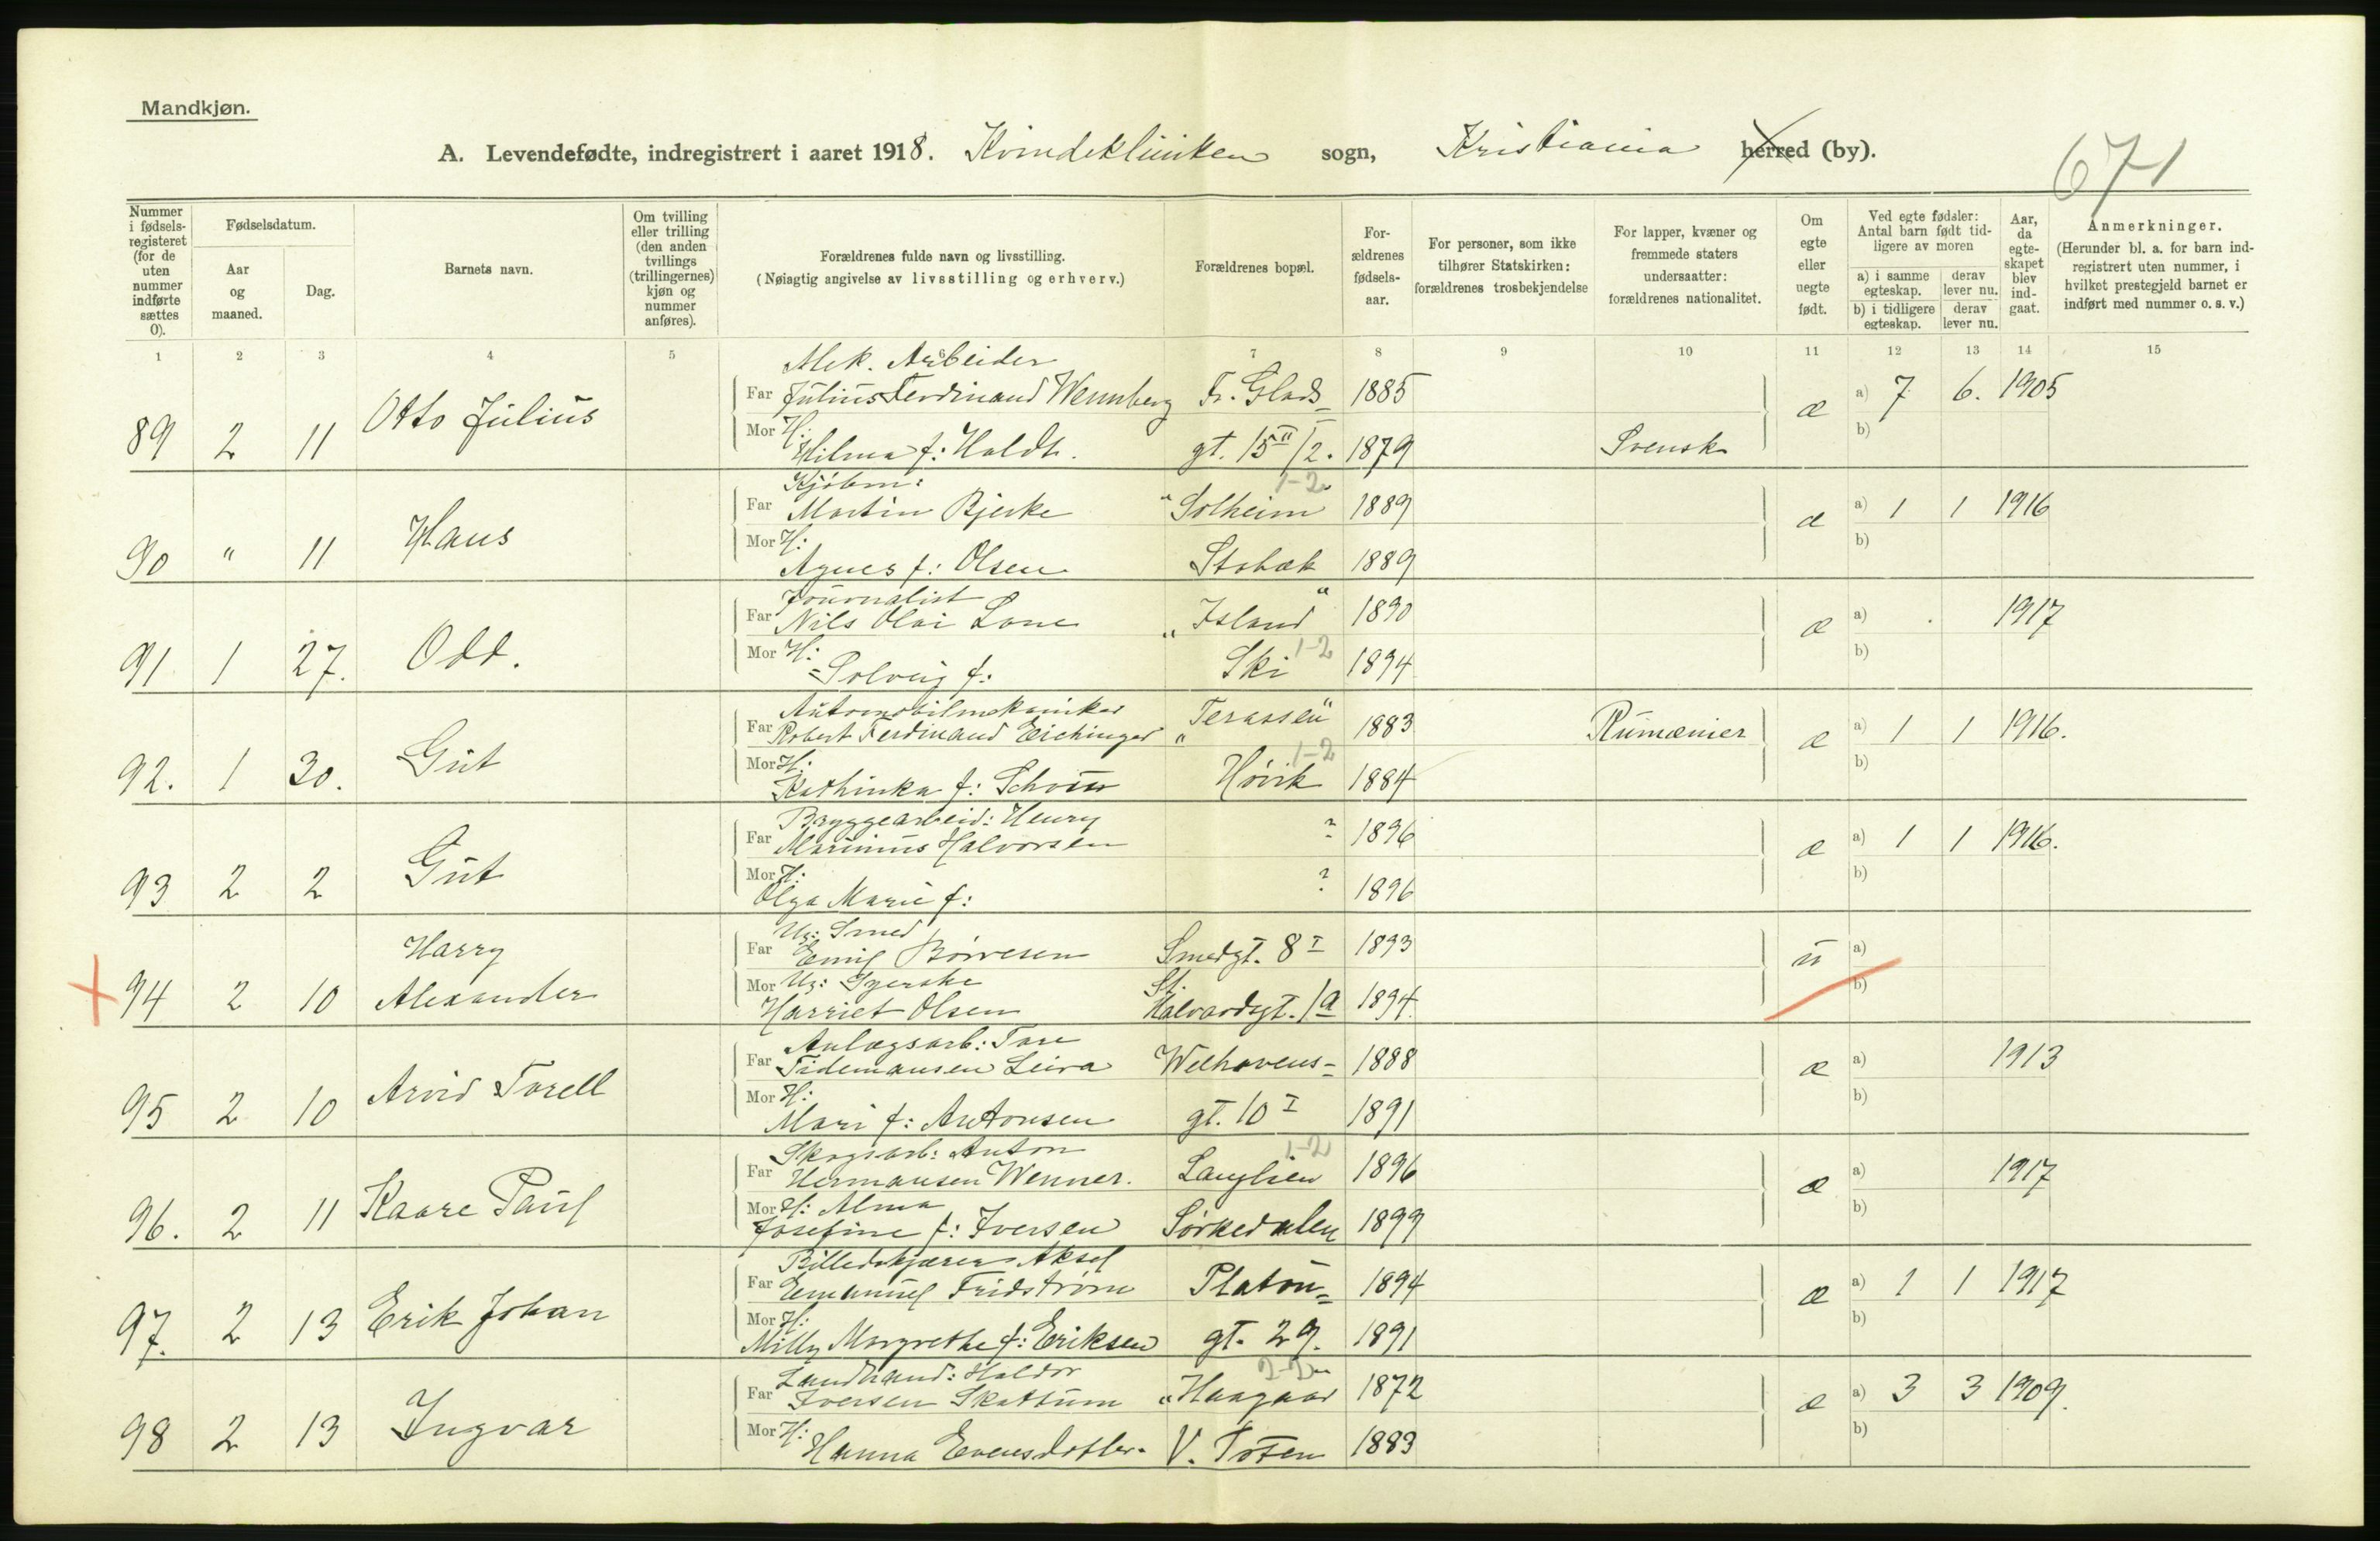 Mandkjøn.
A. Levendefødte, indregistrert i aaret 1918. Kvindeklinikken sogn, Kristiania herred (by).
671
Nummer i fødsels-registeret (for de uten nummer indførte sættes 0).
Fødselsdatum.
Aar og maaned.
Dag.
Barnets navn.
Om tvilling eller trilling (den anden tvillings (trillingernes) kjøn og nummer anføres).
Forældrenes fulde navn og livsstilling.
(Nøiagtig angivelse av livsstilling og erhverv.)
Forældrenes bopæl.
For-ældrenes fødsels-aar.
For personer, som ikke tilhører Statskirken: forældrenes trosbekjendelse
For lapper, kvæner og fremmede staters undersaatter: forældrenes nationalitet.
Om egte eller uegte født.
Ved egte fødsler: Antal barn født tid-ligere av moren
a) i samme egteskap. derav lever nu.
b) i tidligere egteskap. derav lever nu.
Aar, da egte-skapet blev ind-gaat.
Anmerkninger.
(Herunder bl. a. for barn ind-registrert uten nummer, i hvilket prestegjeld barnet er indført med nummer o. s. v.)
1 2 3 4 5 6 7 8 9 10 11 12 13 14 15
Mek. Arbeider
Far Julius Ferdinand Wennberg Fr. Glads- 1885 a) 7 6. 1905
89 2 11 Otto Julius æ
Mor H: Hilma f: Holdt. gt. 15 II/2. 1879 Svensk b)
Kjøbm: 1-2
Far Martin Bjerke "Solheim" 1889 a) 1 1 1916
90 " 11 Hans æ
Mor H: Agnes f: Olsen Stabæk 1889 b)
Journalist
Far Nils Olai Lone "Island" 1890 a) 1917
91 1 27. Odd. æ
Mor H: Solveig f: Ski 1-2 1894 b)
Automobilmekaniker
Far Robert Ferdinand Eichinger "Terassen" 1883 Rumænier a) 1 1 1916.
92. 1 30. Gut æ
Mor H: Kathinka f: Høvik 1-2 1884 b)
Bryggearbeid: Henry
Far Marinius Halvorsen ? 1896 a) 1 1 1916.
93 2 2 Gut æ
Mor H: Olga Marie f: ? 1896 b)
Ug: Smed
Far Emil Børresen Smedgt. 8 I 1893 ü a)
94 2 10 Harry Alexander
Mor Ug: Syerske
Harriet Olsen St. Halvardsgt. 1a 1894. b)
Anlægsarb: Tore
Far Tidemansen Leira Welhavens- 1888 a) 1913
95 2 10 Arvid Torell æ
Mor H: Mari f: Antonsen gt. 10 I 1891 b)
Skogsarb: Anton 1-2
Far Hermansen Wenner. Langlien 1896 a) 1917
96. 2 11 Kaare Paul æ
Mor H: Alma
Josefine f: Iversen Sørkedalen 1899 b)
Billedskjærer Aksel
Far Emanuel Fridstrøm Platou- 1894 a) 1 1 1917
97. 2 13 Erik Johan æ
Mor H: Milly Margrethe f: Eriksen gt. 29. 1891 b)
Landhand: Haldor 2-2
Far Iversen Skattum "Haagaar" 1872 a) 3 3 1909.
98 2 13 Ingvar æ
Mor H: Hanna Evensdotter. V. Toten 1883 b)